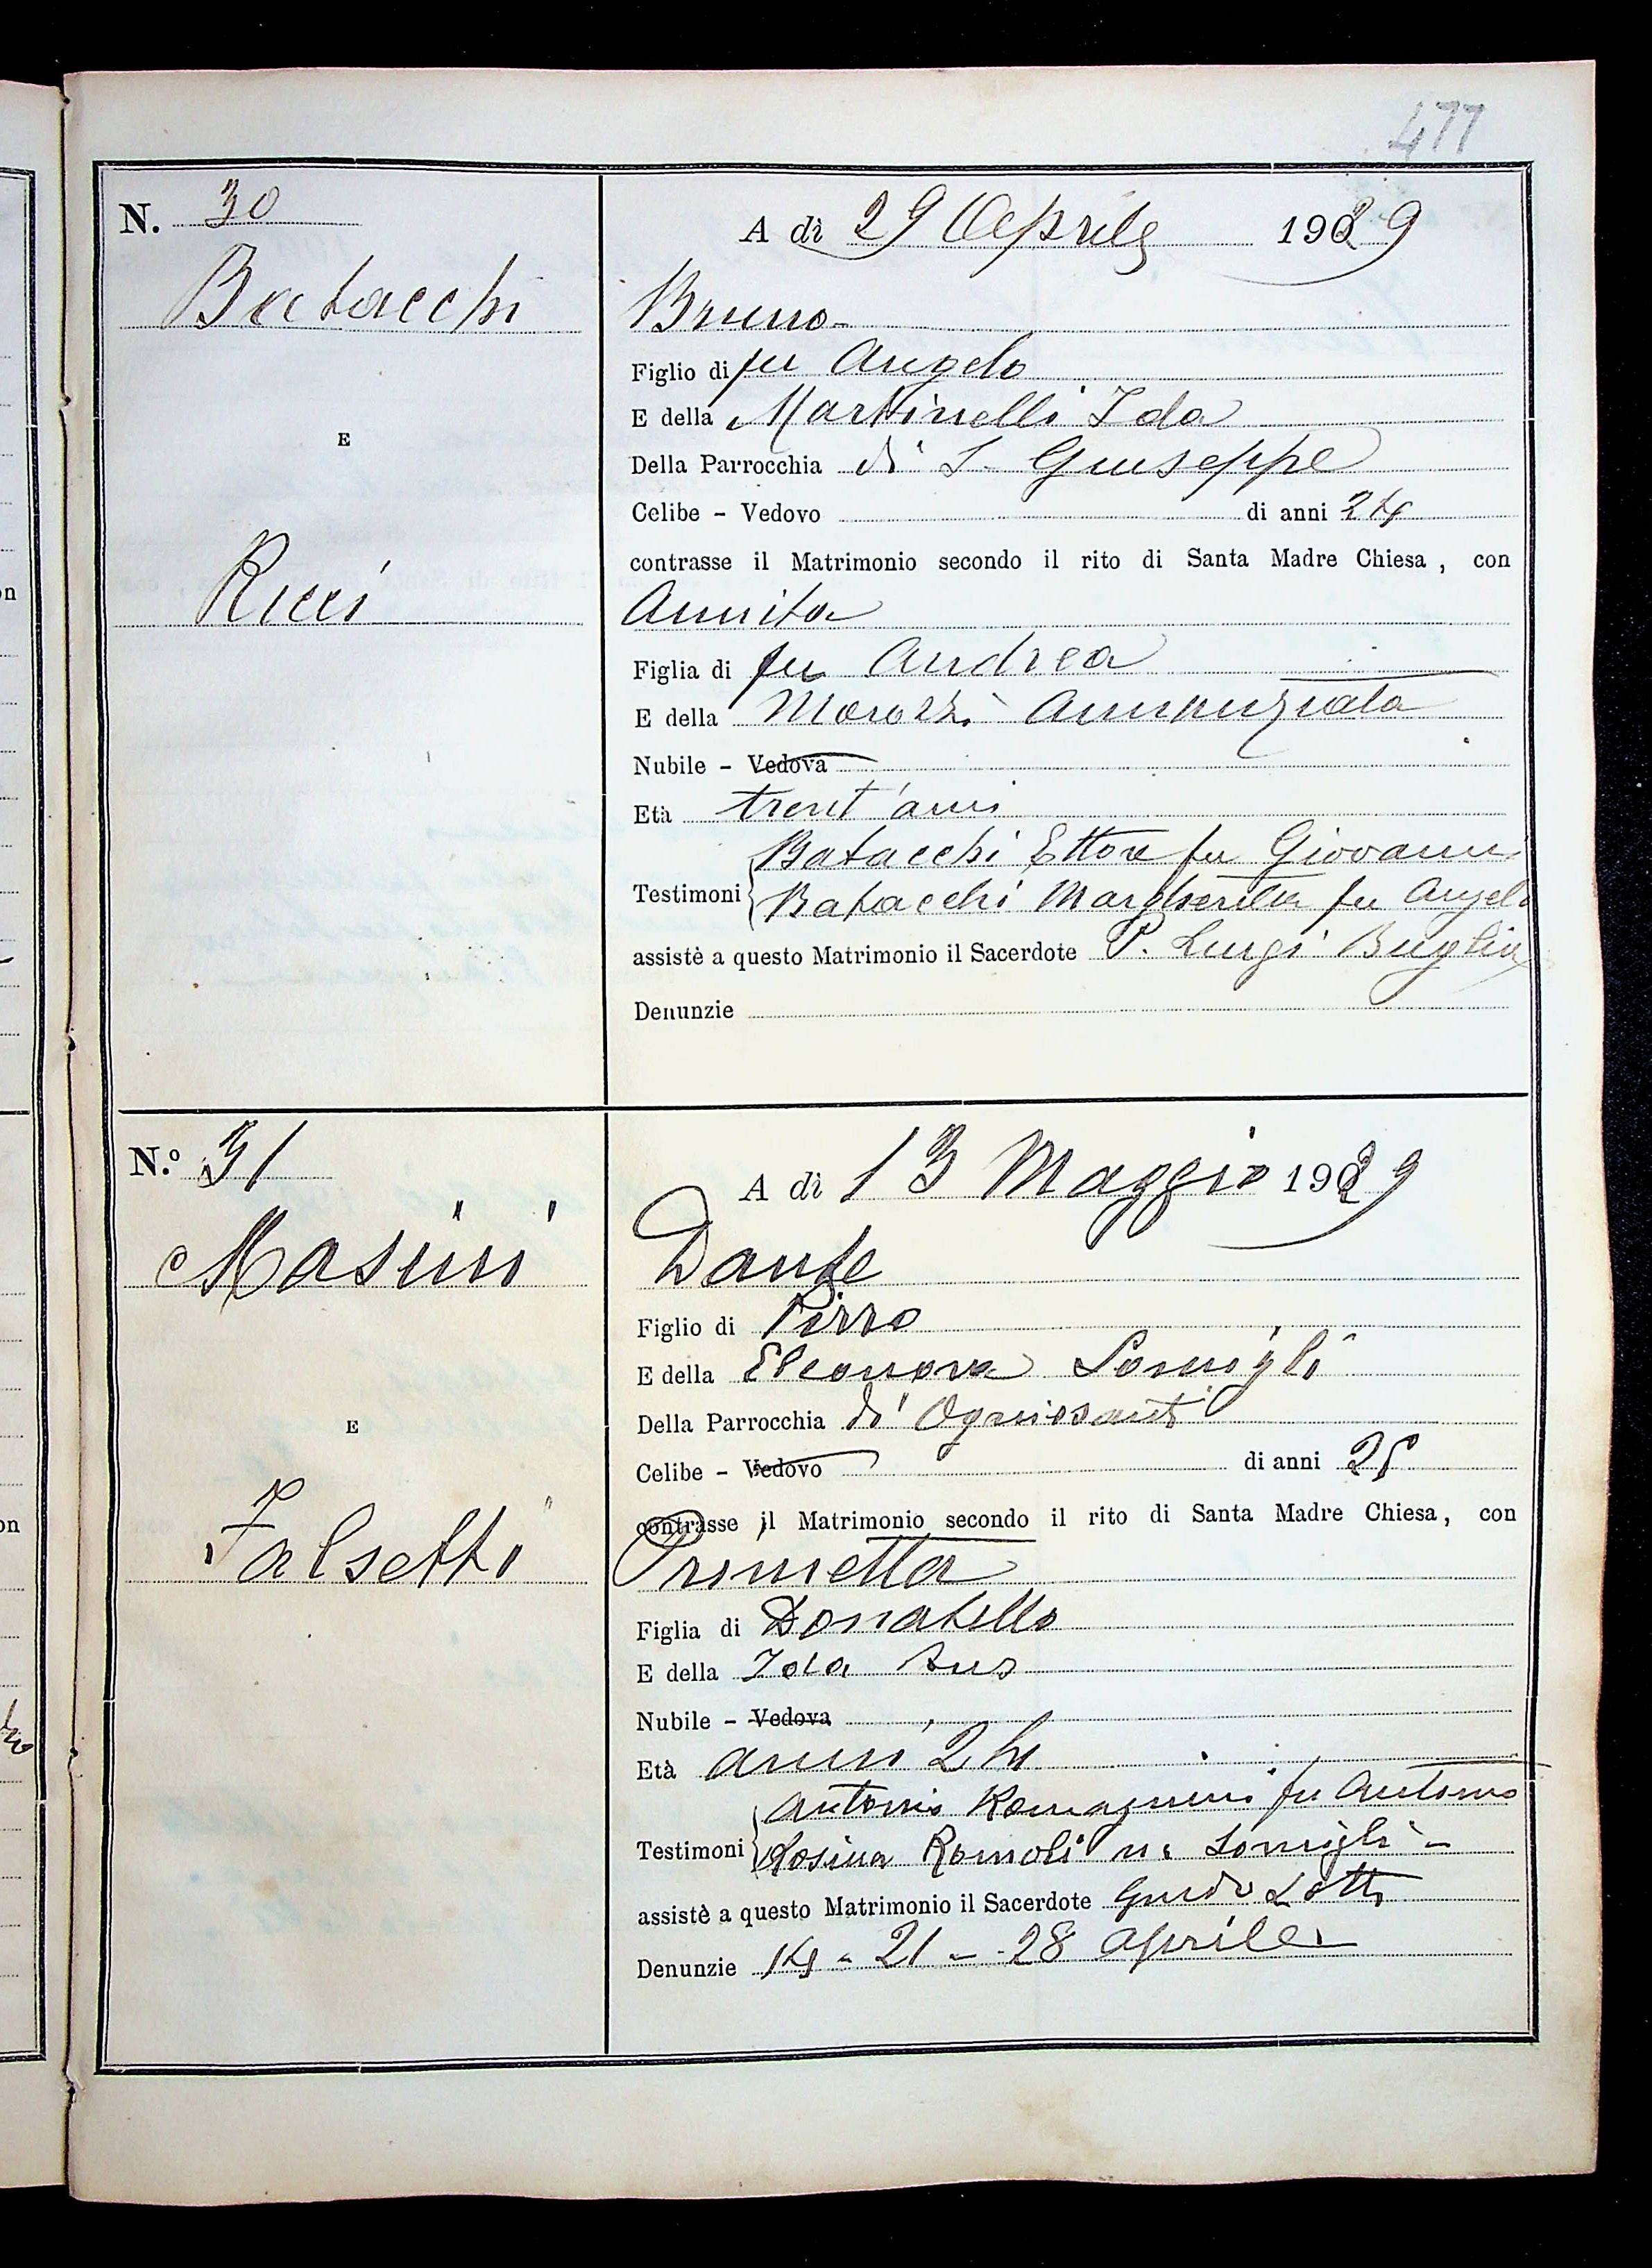 477
N. 30
A dì 29 Aprile 1929
Batacchi
Bruno
Figlio di fu Angelo
E della Martinelli Ida
E
Della Parrocchia di S. Giuseppe
Celibe - Vedovo di anni 24
contrasse il Matrimonio secondo il rito di Santa Madre Chiesa, con
Ricci
Annita
Figlia di fu Andrea
E della Marozzi Annunziata
Nubile - Vedova
Età trent'anni
Batacchi Ettore fu Giovanni
Testimoni
Batacchi Margherita fu Angelo
assistè a questo Matrimonio il Sacerdote P. Luigi
Denunzie
N.º 31
A dì 13 Maggio 1929
Masini
Dante
Figlio di Pirro
E della Eleonora Somigli
Della Parrocchia di Ognissanti
E
Celibe - Vedovo di anni
contrasse il Matrimonio secondo il rito di Santa Madre Chiesa, con
Falsetti
Primetta
Figlia di Donatello
E della Ida
Nubile - Vedova
Età anni 24
Antonio Romagnini fu Antonio
Testimoni
Rosina Romoli n. Somigli
assistè a questo Matrimonio il Sacerdote Guido Lotti
Denunzie 14 - 21 - 28 Aprile